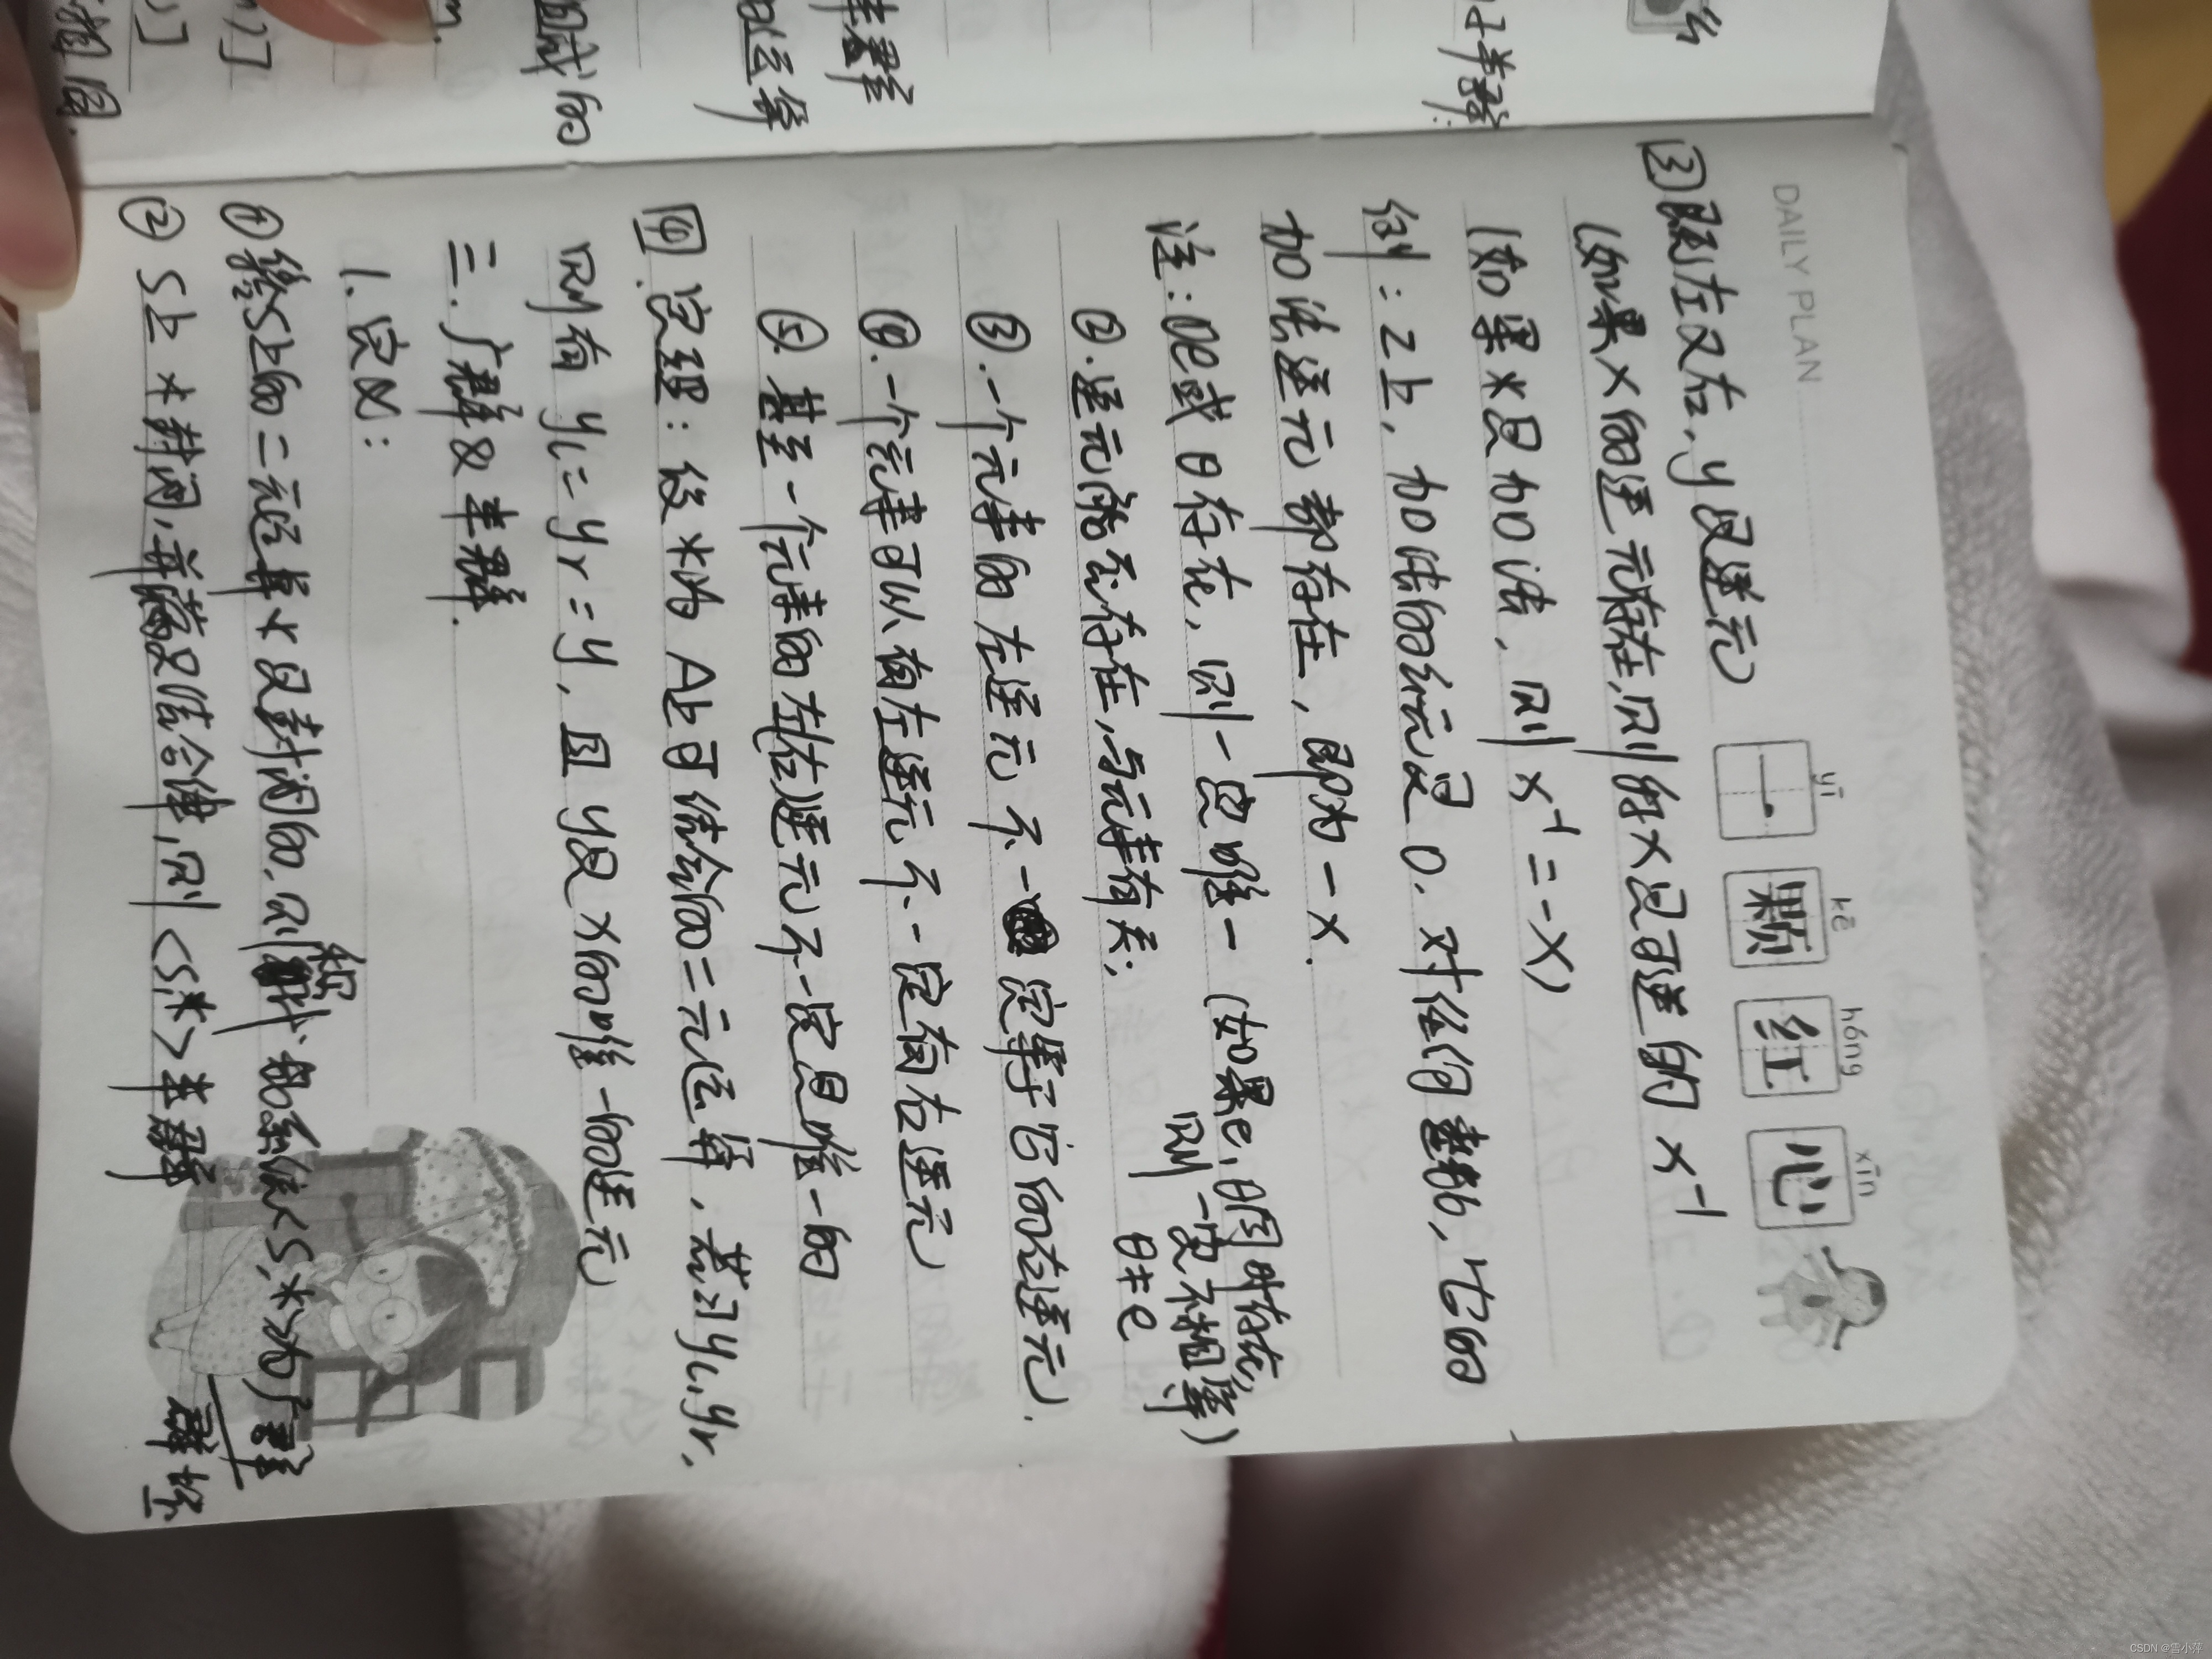 DAILY PLAN
yī kē hóng xīn
一颗红心
③既左又右，y是逆元）
（如果x的逆元存在，则称x是可逆的 x⁻¹
（如果*是加法，则 x⁻¹＝－x）
例：Z上，加法的幺元是0．对任何整数，它的
加法逆元都存在，即为－x．
注：①e或θ存在，则一定唯一（如果e，θ同时存在，
则一定不相等）
θ≠e
②．逆元是否存在，与元素有关；
③．一个元素的左逆元不一定等于它的右逆元．
④．一个元素可以有左逆元不一定有右逆元
⑤．甚至一个元素的左（右）逆元不一定是唯一的
④定理：设*为A上可结合的二元运算，若对yₗ，yᵣ，
则有 yₗ＝yᵣ＝y，且y是x的唯一的逆元
三．广群及半群．
1．定义：
①若S上的二元运算*是封闭的，则称代数系统<S,*>为广群
②S上*封闭，并满足结合律，则<S,*>半群
CSDN @雪小萍